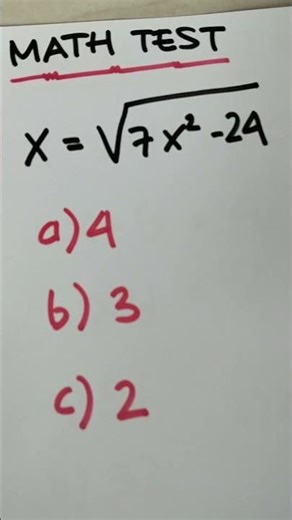 MATH TEST
x = √7x² -24
a) 4
b) 3
c) 2